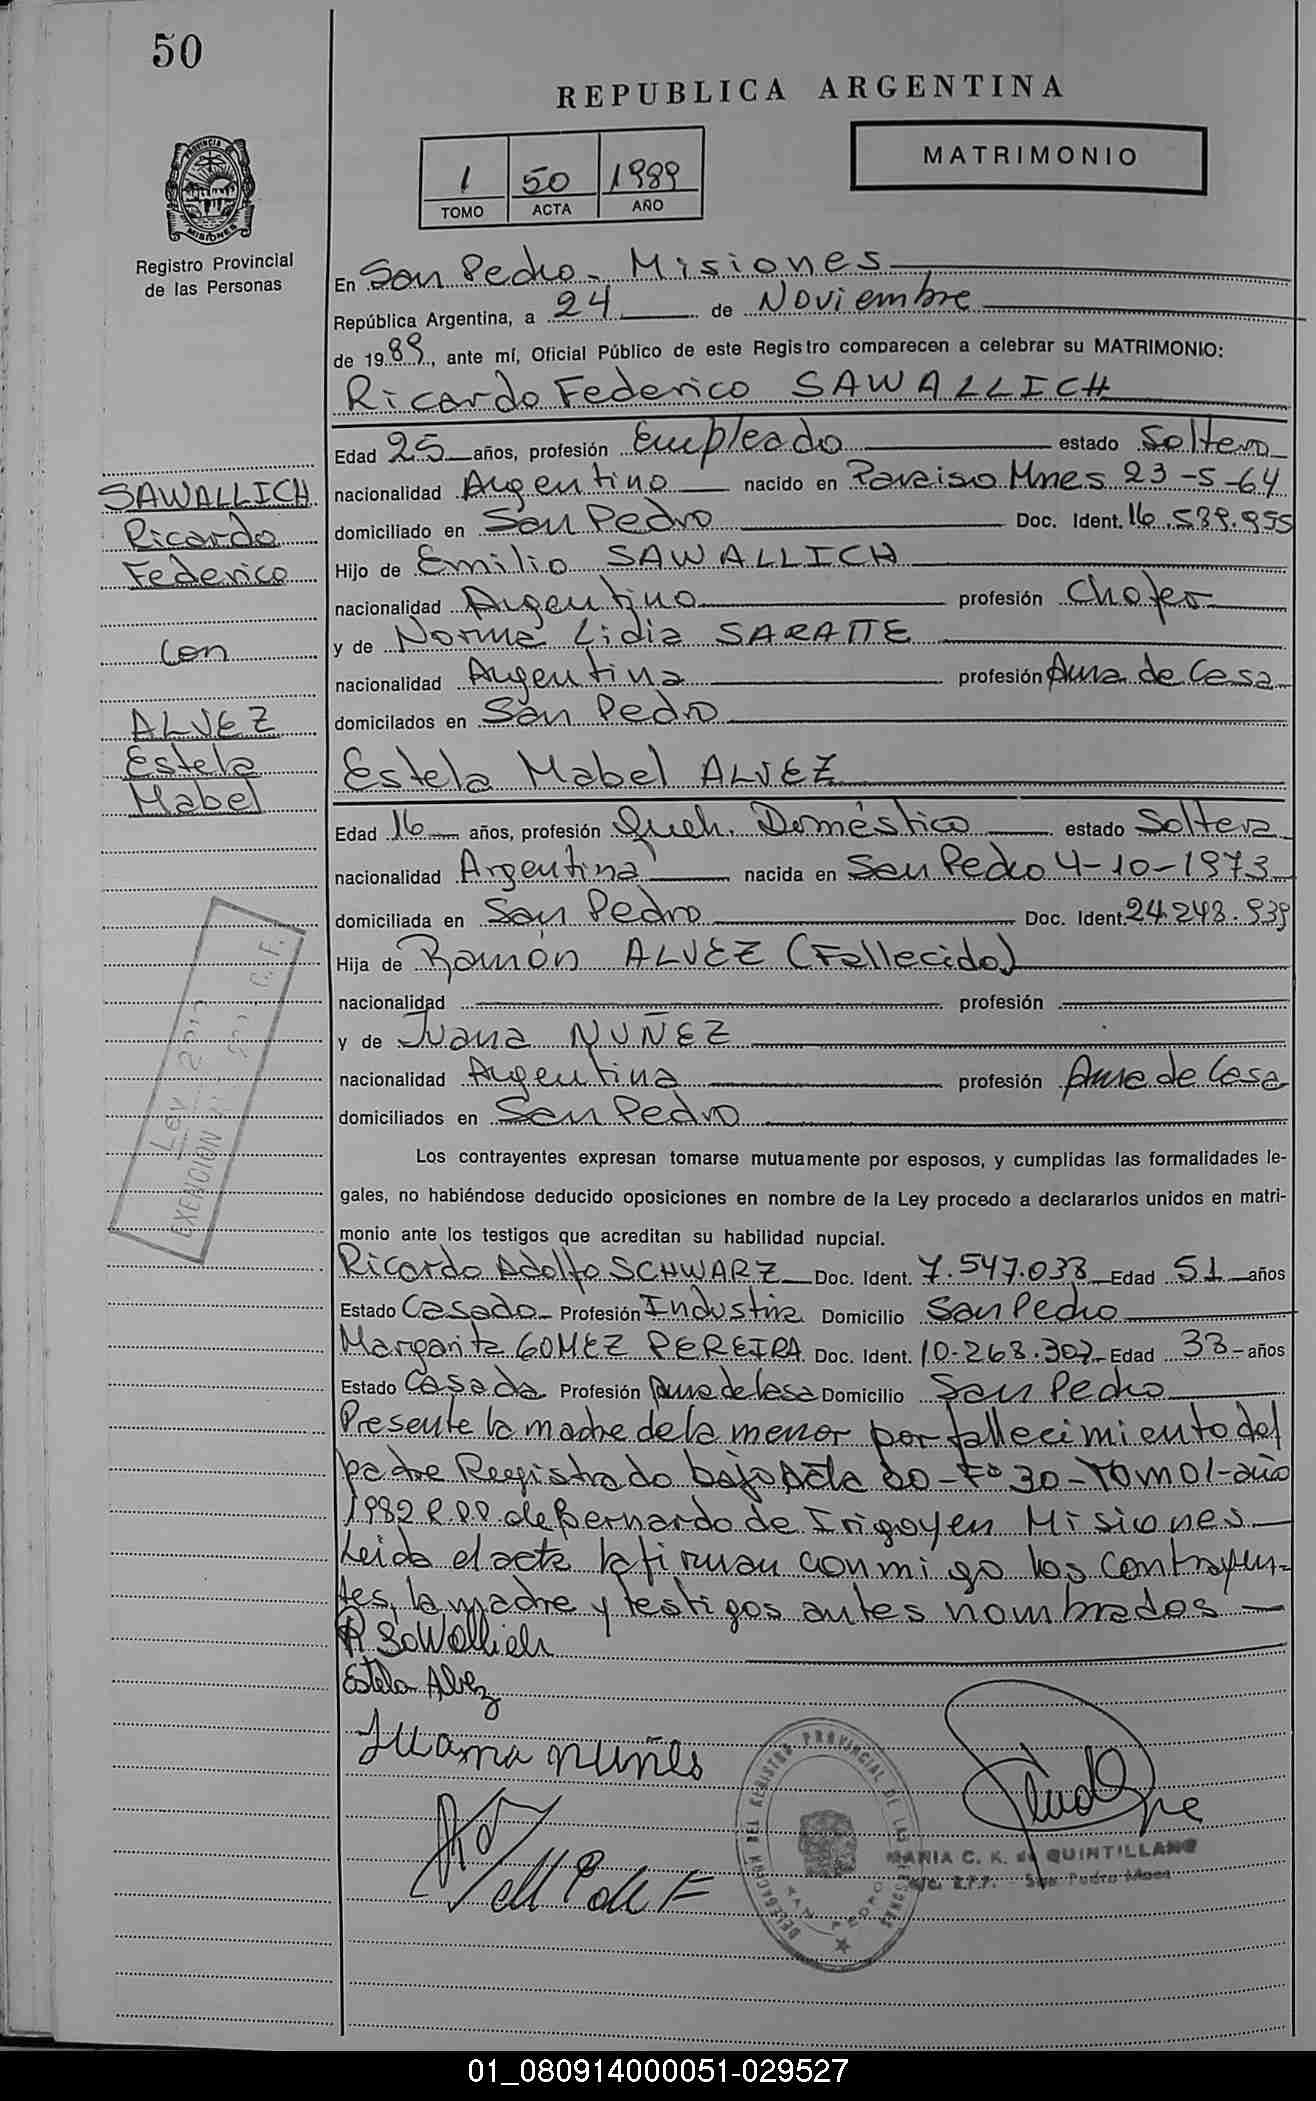 50
REPUBLICA ARGENTINA
MATRIMONIO
1 50 1989
TOMO ACTA AÑO
PROVINCIA DE MISIONES
Registro Provincial
de las Personas
En San Pedro - Misiones
República Argentina, a 24 de Noviembre
de 1989, ante mí, Oficial Público de este Registro comparecen a celebrar su MATRIMONIO:
Ricardo Federico SAWALLICH
Edad 25 años, profesión Empleado estado Soltero
nacionalidad Argentino nacido en Paraiso Mnes 23-5-64
domiciliado en San Pedro Doc. Ident. 16.589.955
Hijo de Emilio SAWALLICH
nacionalidad Argentino profesión Chofer
y de Norma Lidia SARATTE
nacionalidad Argentina profesión Ama de Casa
domicilados en San Pedro
SAWALLICH
Ricardo
Federico
con
ALVEZ
Estela
Mabel
Estela Mabel ALVEZ
Edad 16 años, profesión Queh. Doméstico estado Soltera
nacionalidad Argentina nacida en San Pedro 4-10-1973
domiciliada en San Pedro Doc. Ident. 24.248.939
Hija de Ramón ALVEZ (Fallecido)
nacionalidad profesión
y de Juana NUÑEZ
nacionalidad Argentina profesión Ama de Casa
domiciliados en San Pedro
Ley
EXENCION
Los contrayentes expresan tomarse mutuamente por esposos, y cumplidas las formalidades le-
gales, no habiéndose deducido oposiciones en nombre de la Ley procedo a declararlos unidos en matri-
monio ante los testigos que acreditan su habilidad nupcial.
Ricardo Adolfo SCHWARZ Doc. Ident. 7.547.038 Edad 51 años
Estado Casado Profesión Industria Domicilio San Pedro
Margarita GOMEZ PEREIRA Doc. Ident. 10.268.307 Edad 38 años
Estado Casada Profesión Ama de Casa Domicilio San Pedro
Presente la madre de la menor por fallecimiento del
padre Registrado bajo Acta 60-Fº 30-Tomo 1-año
1982 R.P.P. de Bernardo de Irigoyen Misiones
Leida el acta la firman conmigo los contrayen-
tes, la madre y testigos antes nombrados
R Sawallich
Estela Alvez
Juana Nuñes
DELEGACION DEL REGISTRO PROVINCIAL DE LAS PERSONAS
SAN PEDRO
MARIA C. K. de QUINTILLANO
R.P.P. San Pedro Mnes
01_080914000051-029527